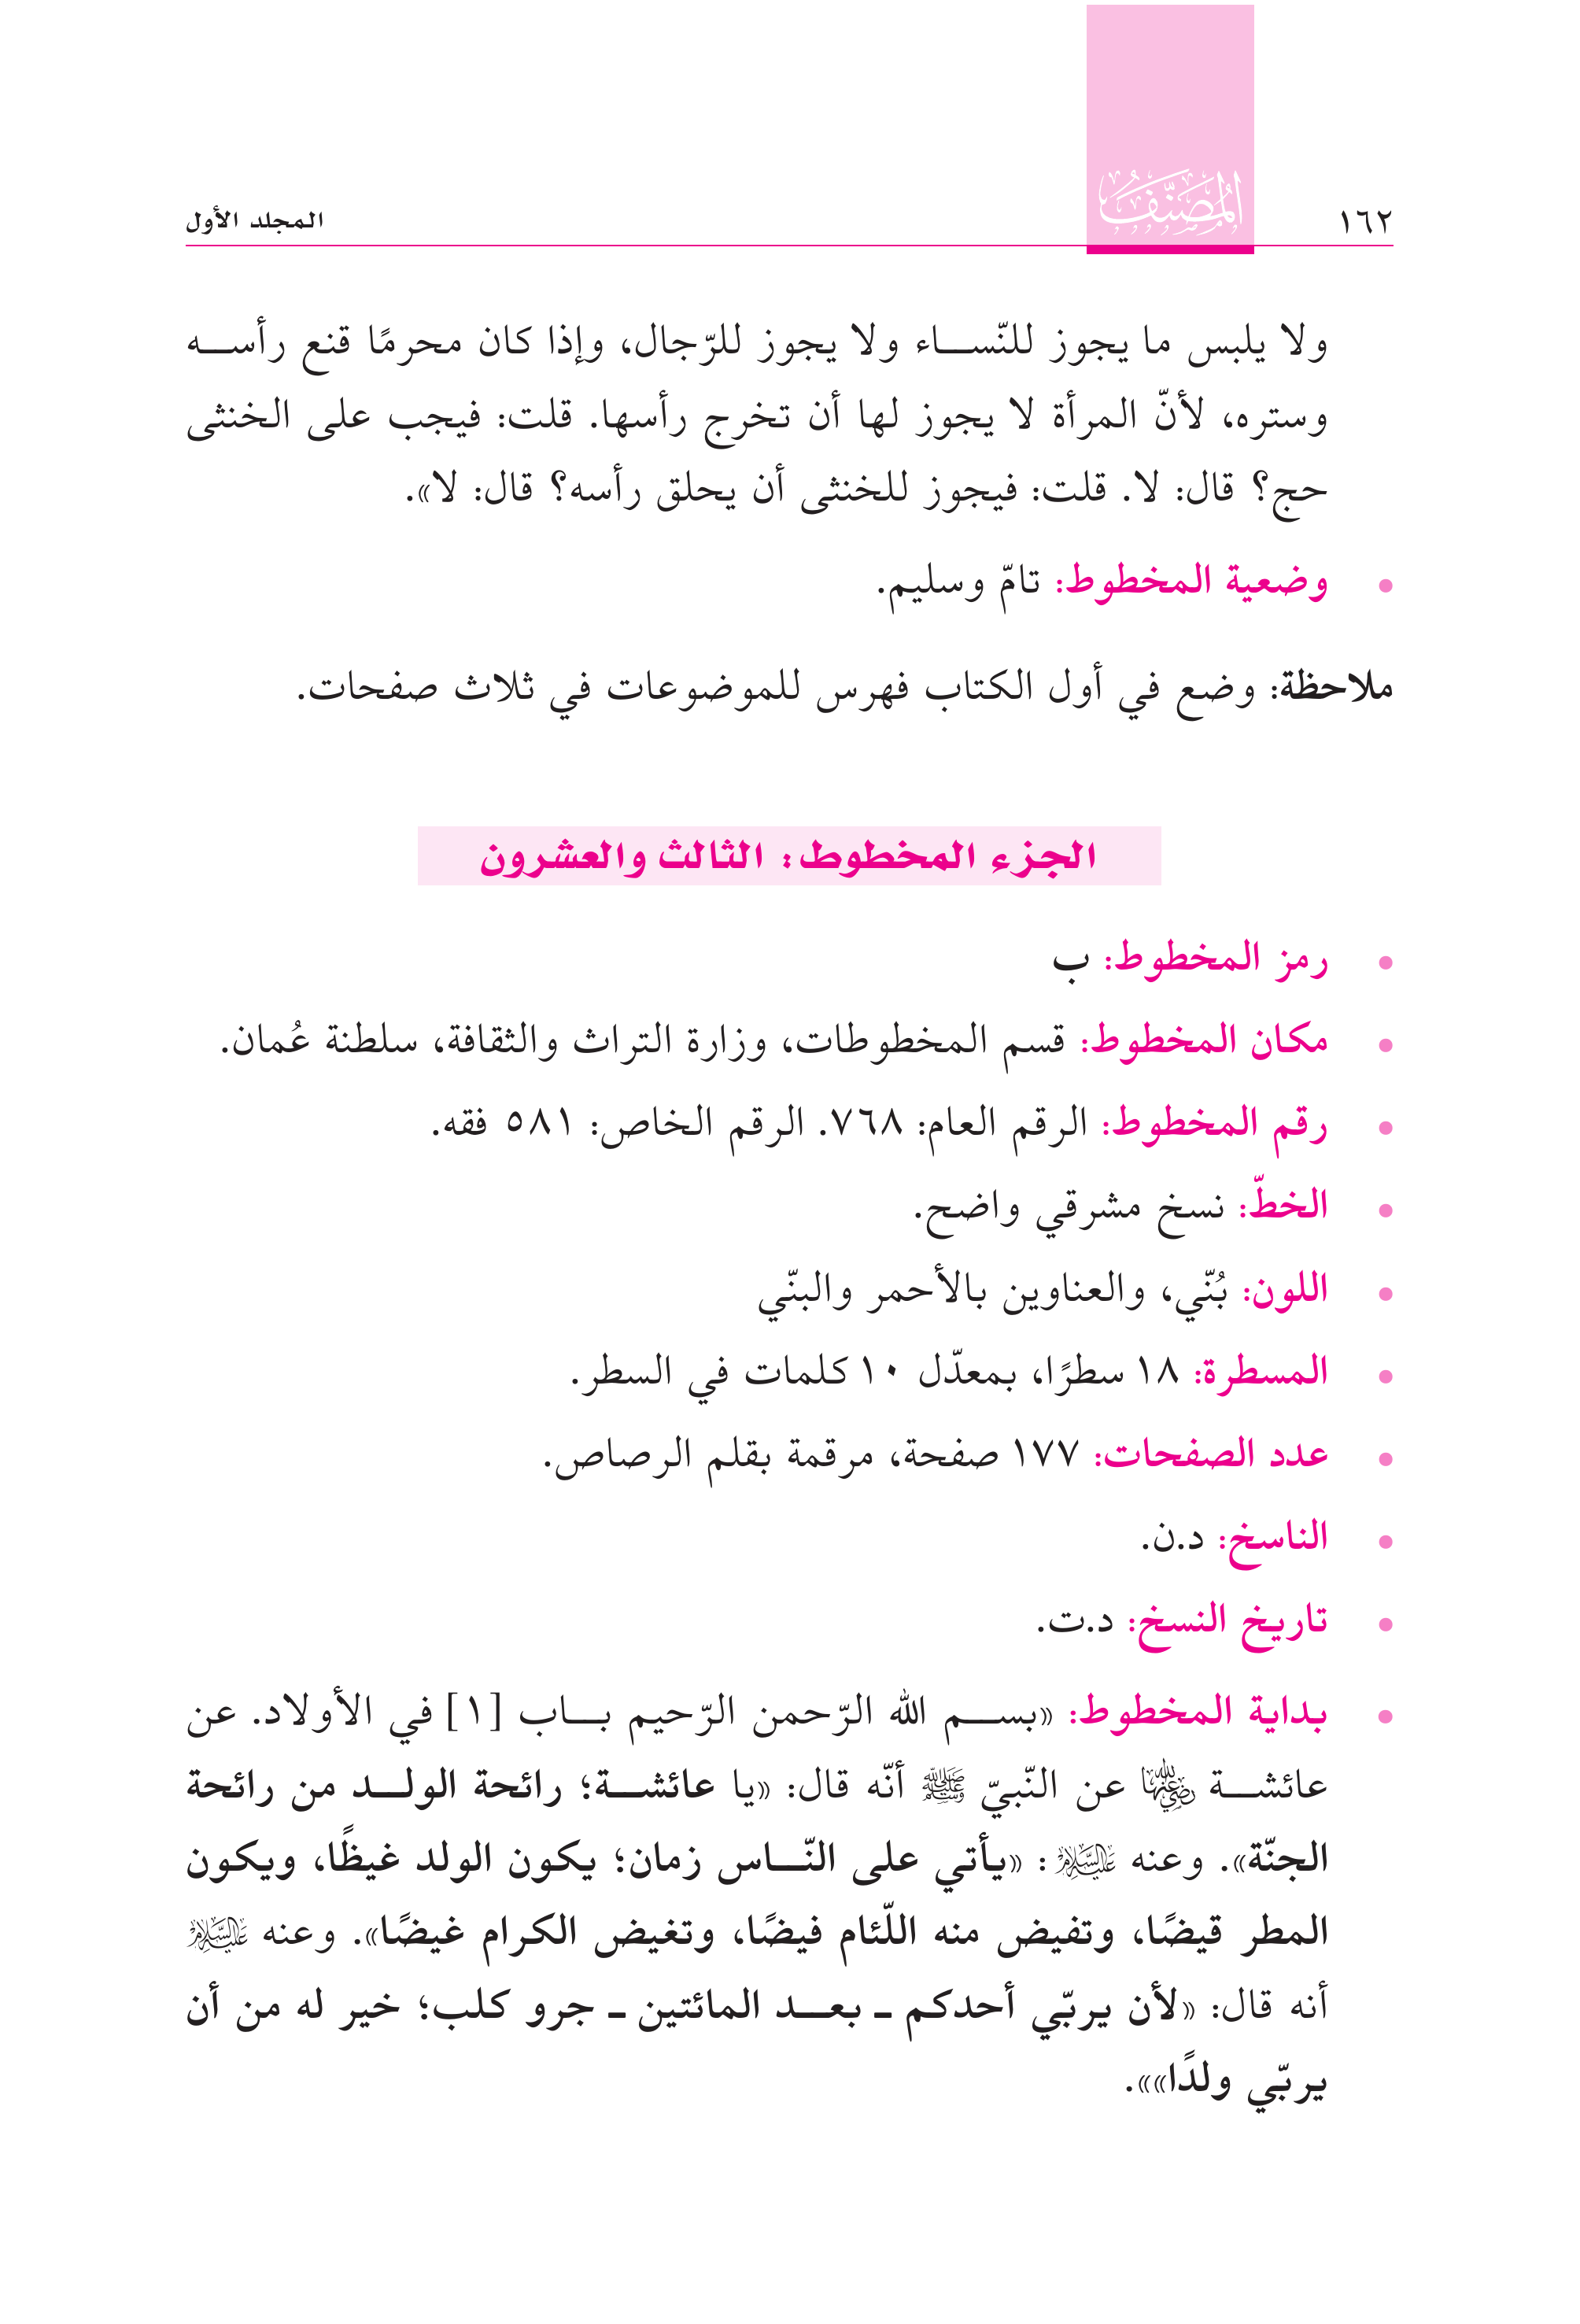 ١٦٢
المصنّف
المجلد الأول
ولا يلبس ما يجوز للنّساء ولا يجوز للرّجال، وإذا كان محرمًا قنع رأسه
وستره، لأنّ المرأة لا يجوز لها أن تخرج رأسها. قلت: فيجب على الخنثى
حج؟ قال: لا. قلت: فيجوز للخنثى أن يحلق رأسه؟ قال: لا».
• وضعية المخطوط: تامّ وسليم.
ملاحظة: وضع في أول الكتاب فهرس للموضوعات في ثلاث صفحات.
الجزء المخطوط: الثالث والعشرون
• رمز المخطوط: ب
• مكان المخطوط: قسم المخطوطات، وزارة التراث والثقافة، سلطنة عُمان.
• رقم المخطوط: الرقم العام: ٧٦٨. الرقم الخاص: ٥٨١ فقه.
• الخطّ: نسخ مشرقي واضح.
• اللون: بُنّي، والعناوين بالأحمر والبنّي
• المسطرة: ١٨ سطرًا، بمعدّل ١٠ كلمات في السطر.
• عدد الصفحات: ١٧٧ صفحة، مرقمة بقلم الرصاص.
• الناسخ: د.ن.
• تاريخ النسخ: د.ت.
• بداية المخطوط: «بسم الله الرّحمن الرّحيم باب [١] في الأولاد. عن
عائشة رضي الله عنها عن النّبيّ ﷺ أنّه قال: «يا عائشة؛ رائحة الولد من رائحة
الجنّة». وعنه عليه السلام: «يأتي على النّاس زمان؛ يكون الولد غيظًا، ويكون
المطر قيضًا، وتفيض منه اللّئام فيضًا، وتغيض الكرام غيضًا». وعنه عليه السلام
أنه قال: «لأن يربّي أحدكم ـ بعد المائتين ـ جرو كلب؛ خير له من أن
يربّي ولدًا»».